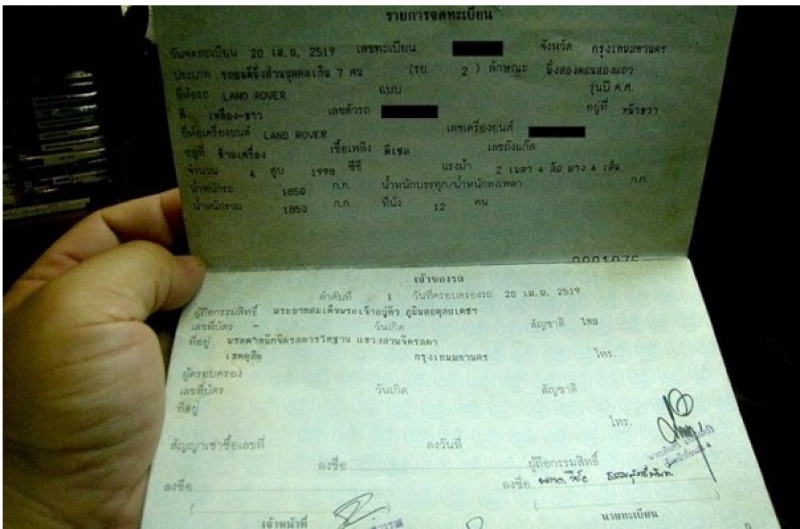 รายการจดทะเบียน
วันจดทะเบียน 20 เม.ย. 2519 เลขทะเบียน จังหวัด กรุงเทพมหานคร
ประเภท รถยนต์นั่งส่วนบุคคลเกิน 7 คน (รย. 2 ) ลักษณะ นั่งสองตอนสองแถว
ยี่ห้อรถ LAND ROVER แบบ รุ่นปี ค.ศ.
สี เหลือง-ขาว เลขตัวรถ อยู่ที่ หน้าขวา
ยี่ห้อเครื่องยนต์ LAND ROVER เลขเครื่องยนต์
อยู่ที่ ซ้ายเครื่อง เชื้อเพลิง ดีเซล เลขถังแก๊ส
จำนวน 4 สูบ 1998 ซีซี แรงม้า 2 เพลา 4 ล้อ ยาง 4 เส้น
น้ำหนักรถ 1850 ก.ก. น้ำหนักบรรทุก/น้ำหนักลงเพลา ก.ก.
น้ำหนักรวม 1850 ก.ก. ที่นั่ง 12 คน
0001076
เจ้าของรถ
ลำดับที่ 1 วันที่ครอบครองรถ 20 เม.ย. 2519
ผู้ถือกรรมสิทธิ์ พระบาทสมเด็จพระเจ้าอยู่หัว ภูมิพลอดุลยเดชฯ
เลขที่บัตร - วันเกิด สัญชาติ ไทย
ที่อยู่ พระตำหนักจิตรลดารโหฐาน แขวงสวนจิตรลดา
เขตดุสิต กรุงเทพมหานคร โทร.
ผู้ครอบครอง
เลขที่บัตร วันเกิด สัญชาติ
ที่อยู่
โทร.
สัญญาเช่าซื้อเลขที่ ลงวันที่
ลงชื่อ ผู้ถือกรรมสิทธิ์
ลงชื่อ ลงชื่อ
เจ้าหน้าที่ นายทะเบียน